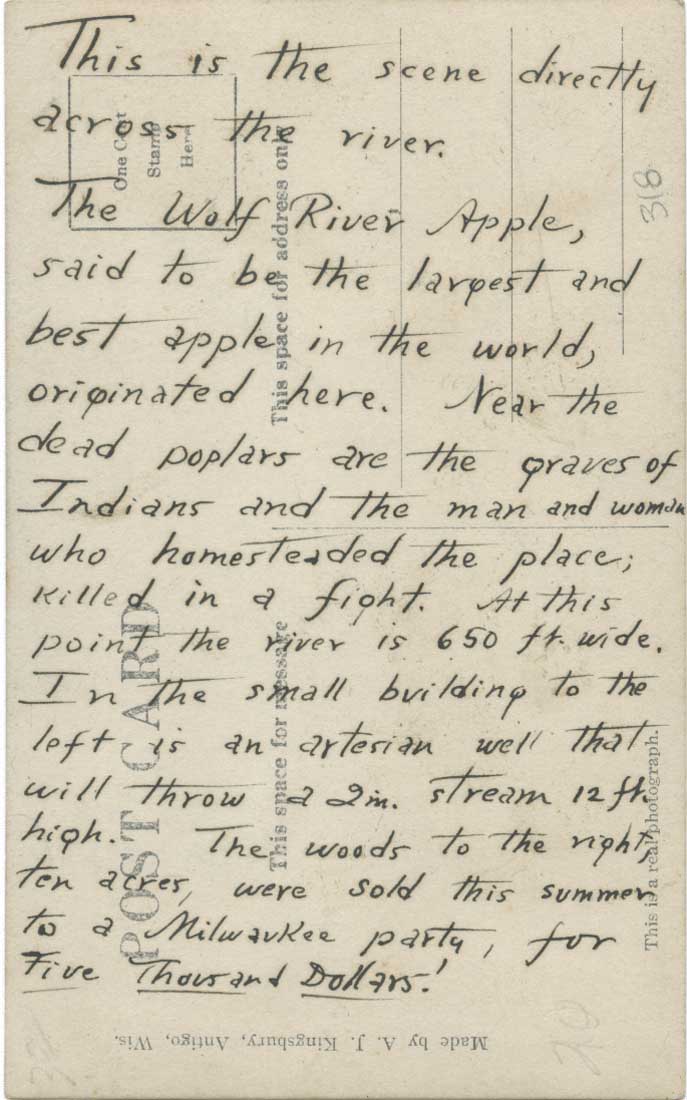 This is the scene directly
across the river.
The Wolf River Apple,
said to be the largest and
best apple in the world,
originated here. Near the
dead poplars are the graves of
Indians and the man and woman
who homesteaded the place;
killed in a fight. At this
point the river is 650 ft. wide.
In the small building to the
left is an artesian well that
will throw a 2in. stream 12 ft.
high. The woods to the right,
ten acres, were sold this summer
to a Milwaukee party, for
Five Thousand Dollars!
One Cent
Stamp
Here
This space for address only
POST CARD
This space for message
This is a real photograph.
Made by A. J. Kingsbury, Antigo, Wis.
318